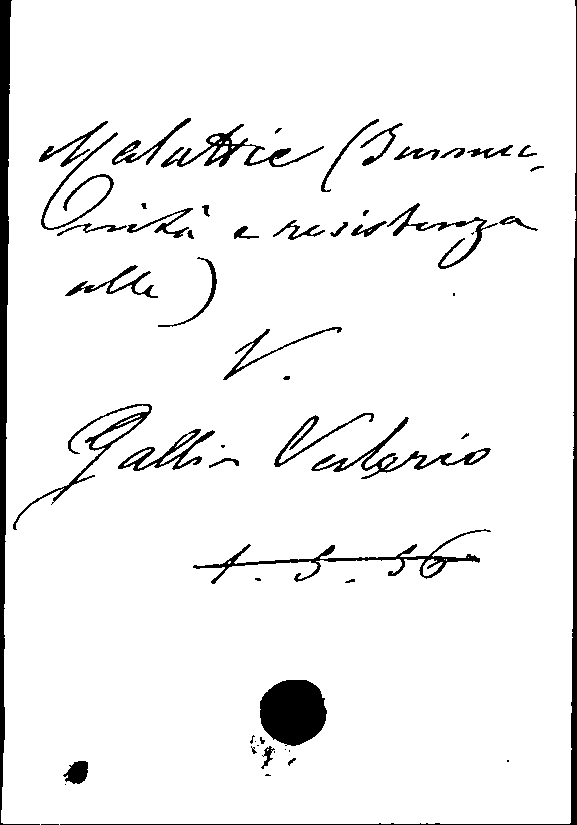 Malattie (Immu-
nità e resistenza
alle)
V.
Galli Valerio
1.5.56